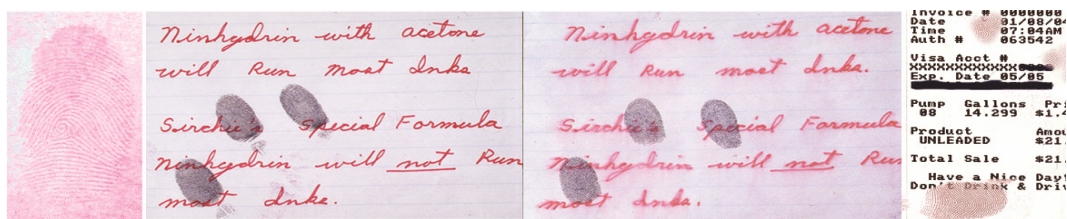 Ninhydrin with acetone
will Run most Inks
Sirchie's Special Formula
Ninhydrin will not Run
most Inks.
Ninhydrin with acetone
will Run most Inks.
Sirchie's Special Formula
Ninhydrin will not Run
most Inks.
Invoice # 0000000
Date 01/08/04
Time 07:04AM
Auth # 063542
Visa Acct #
XXXXXXXXXXXXX
Exp. Date 05/05
Pump Gallons Pri
08 14.299 $1.4
Product Amou
UNLEADED $21.
Total Sale $21.
Have a Nice Day!
Don't Drink & Driv